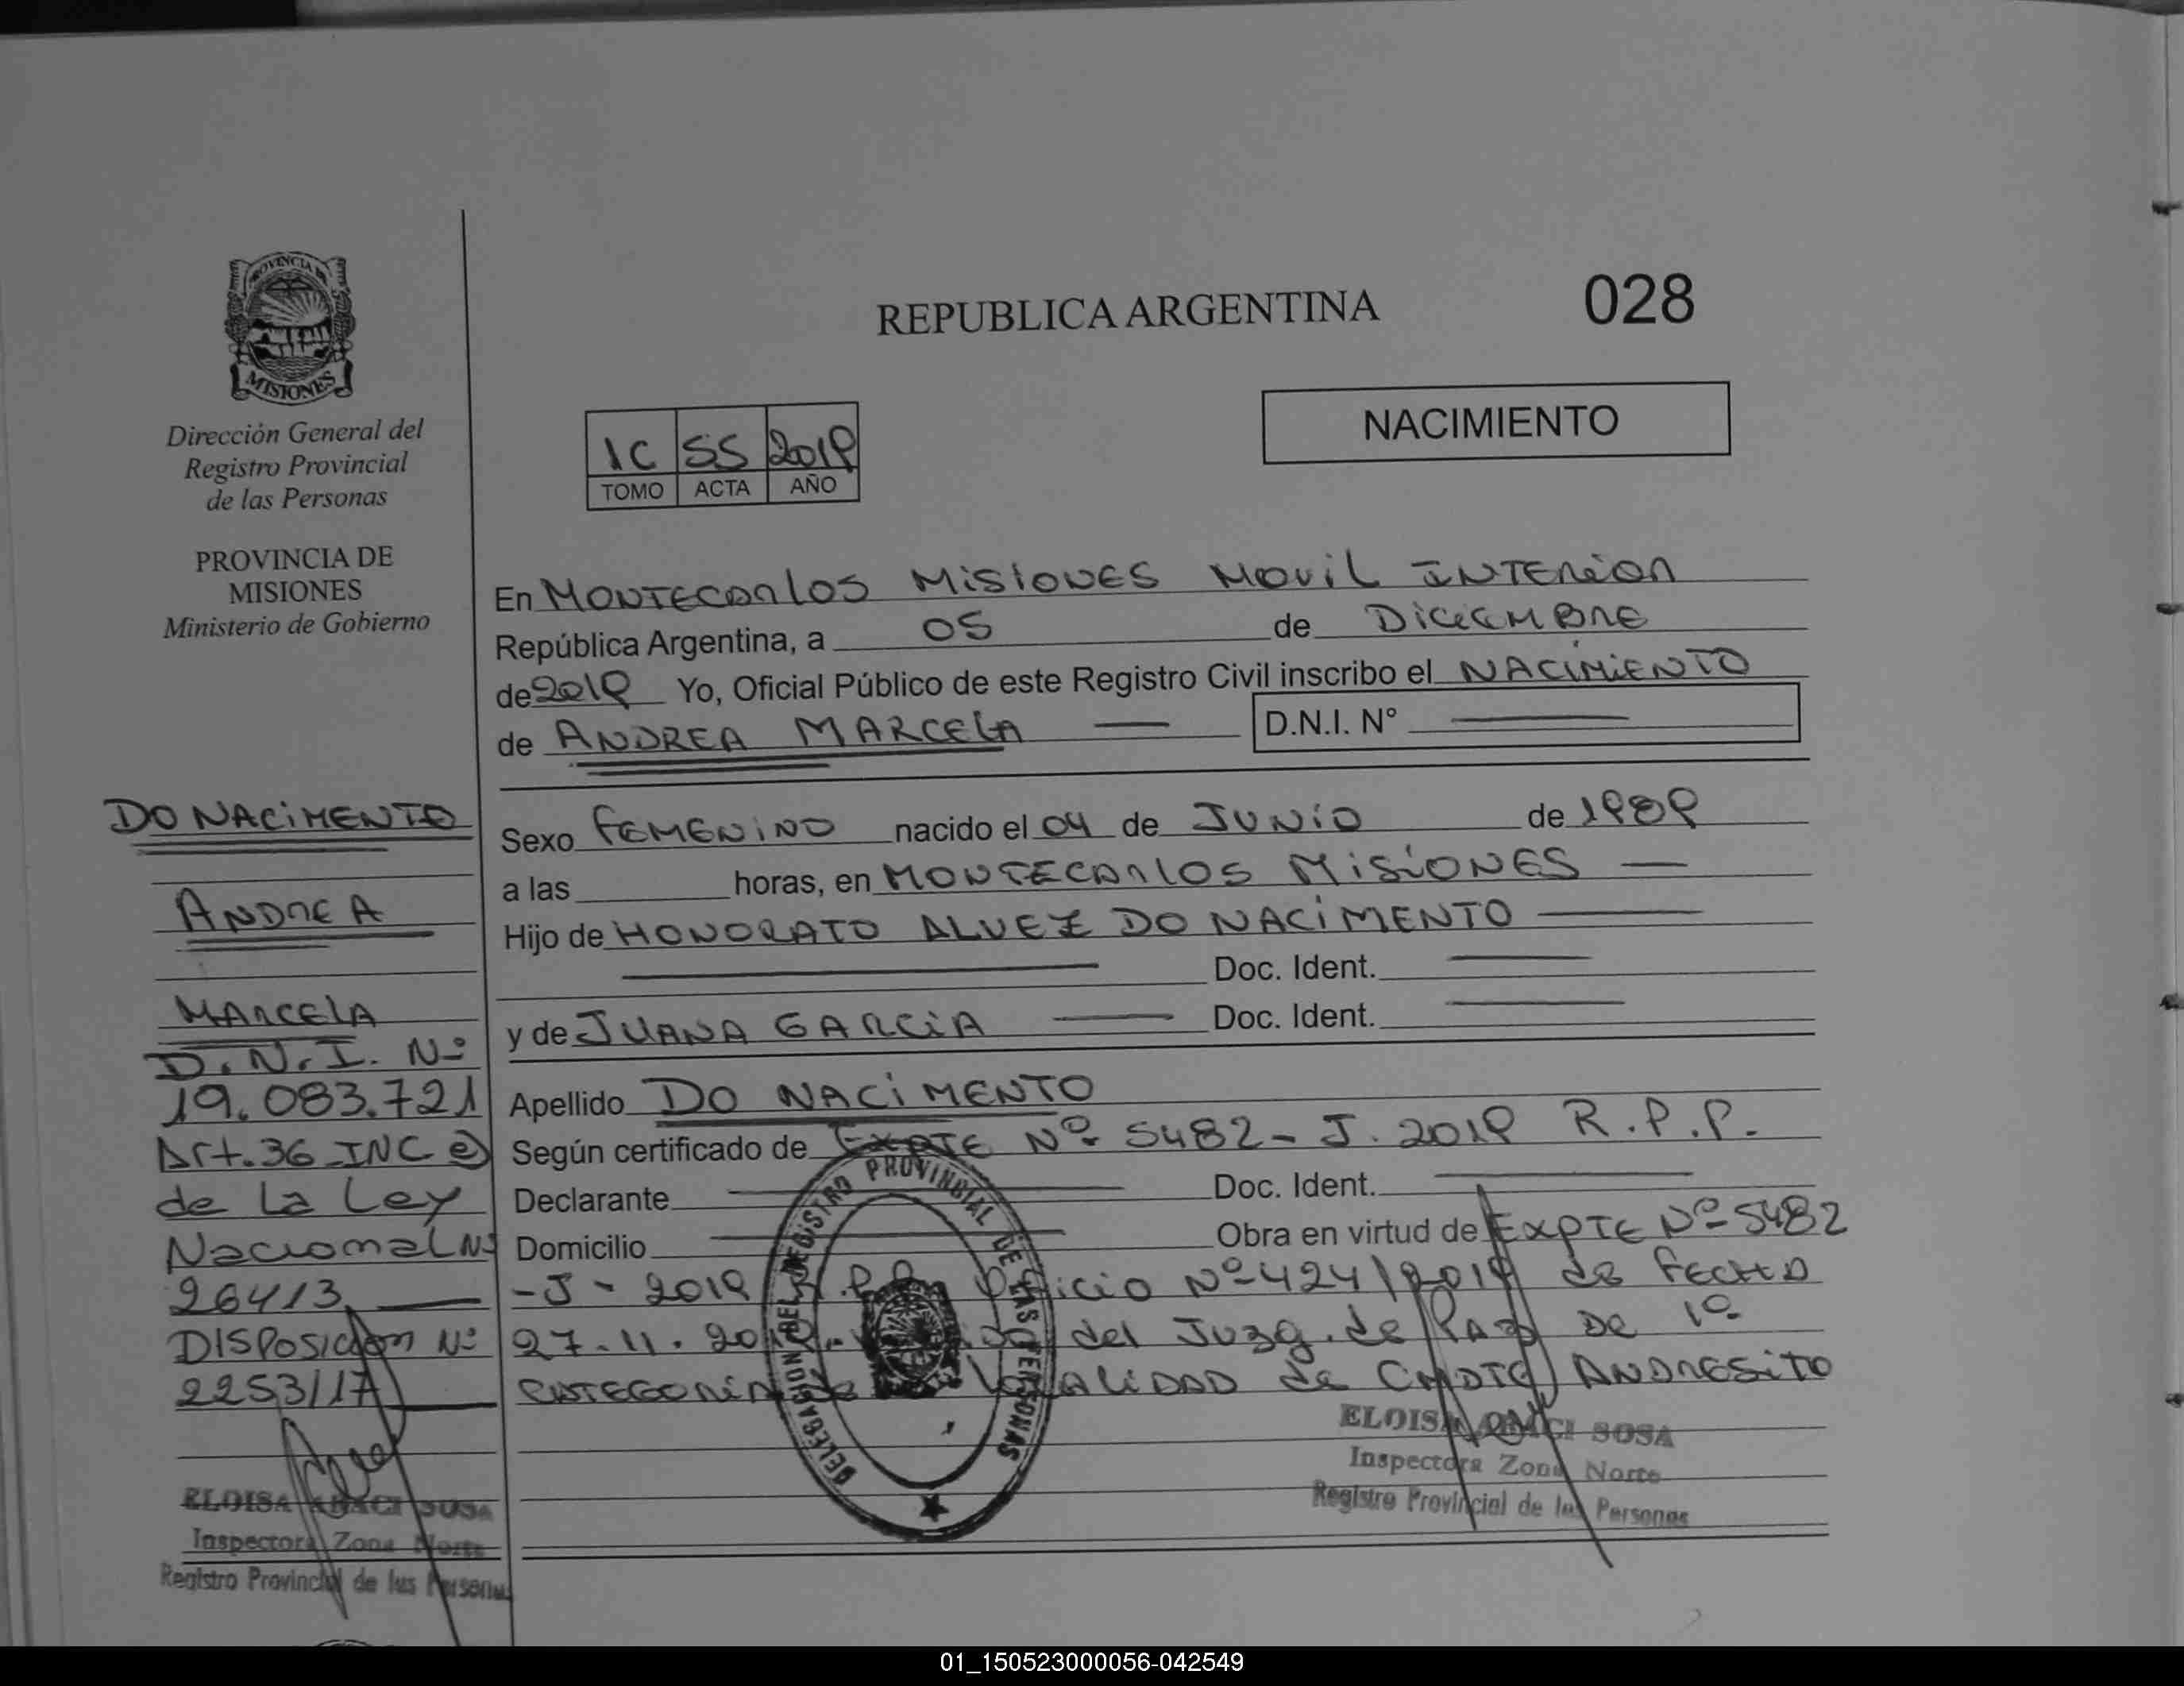 REPUBLICA ARGENTINA
028
PROVINCIA DE
MISIONES
Dirección General del
Registro Provincial
de las Personas
PROVINCIA DE
MISIONES
Ministerio de Gobierno
NACIMIENTO
1C SS 2019
TOMO ACTA AÑO
En MONTECARLOS MISIONES MOVIL INTERIOR
República Argentina, a 05 de DICIEMBRE
de 2019 Yo, Oficial Público de este Registro Civil inscribo el NACIMIENTO
de ANDREA MARCELA — D.N.I. N° —
Sexo FEMENINO nacido el 04 de JUNIO de 1989
a las horas, en MONTECARLOS MISIONES —
Hijo de HONORATO ALVEZ DO NACIMENTO —
— Doc. Ident. —
y de JUANA GARCIA — Doc. Ident. —
Apellido DO NACIMENTO
Según certificado de EXPTE Nº 5482 - J. 2019 R.P.P.
Declarante — Doc. Ident. —
Domicilio — Obra en virtud de EXPTE Nº 5482
- J - 2019 R.P.P. Oficio Nº 424/2019 de FECHA
27.11.2019 del Juzg. de PAZ DE 1º
CATEGORIA de la LOCALIDAD de CMDTE ANDRESITO
DO NACIMENTO
ANDREA
MARCELA
D.N.I. Nº
19.083.721
Art. 36 INC e)
de la Ley
Nacional Nº
26413 —
DISPOSICION Nº
2253/17 —
DELEGACION DEL REGISTRO PROVINCIAL DE LAS PERSONAS
ELOISA SOSA
Inspectora Zona Norte
Registro Provincial de las Personas
ELOISA SOSA
Inspectora Zona Norte
Registro Provincial de las Personas
01_150523000056-042549